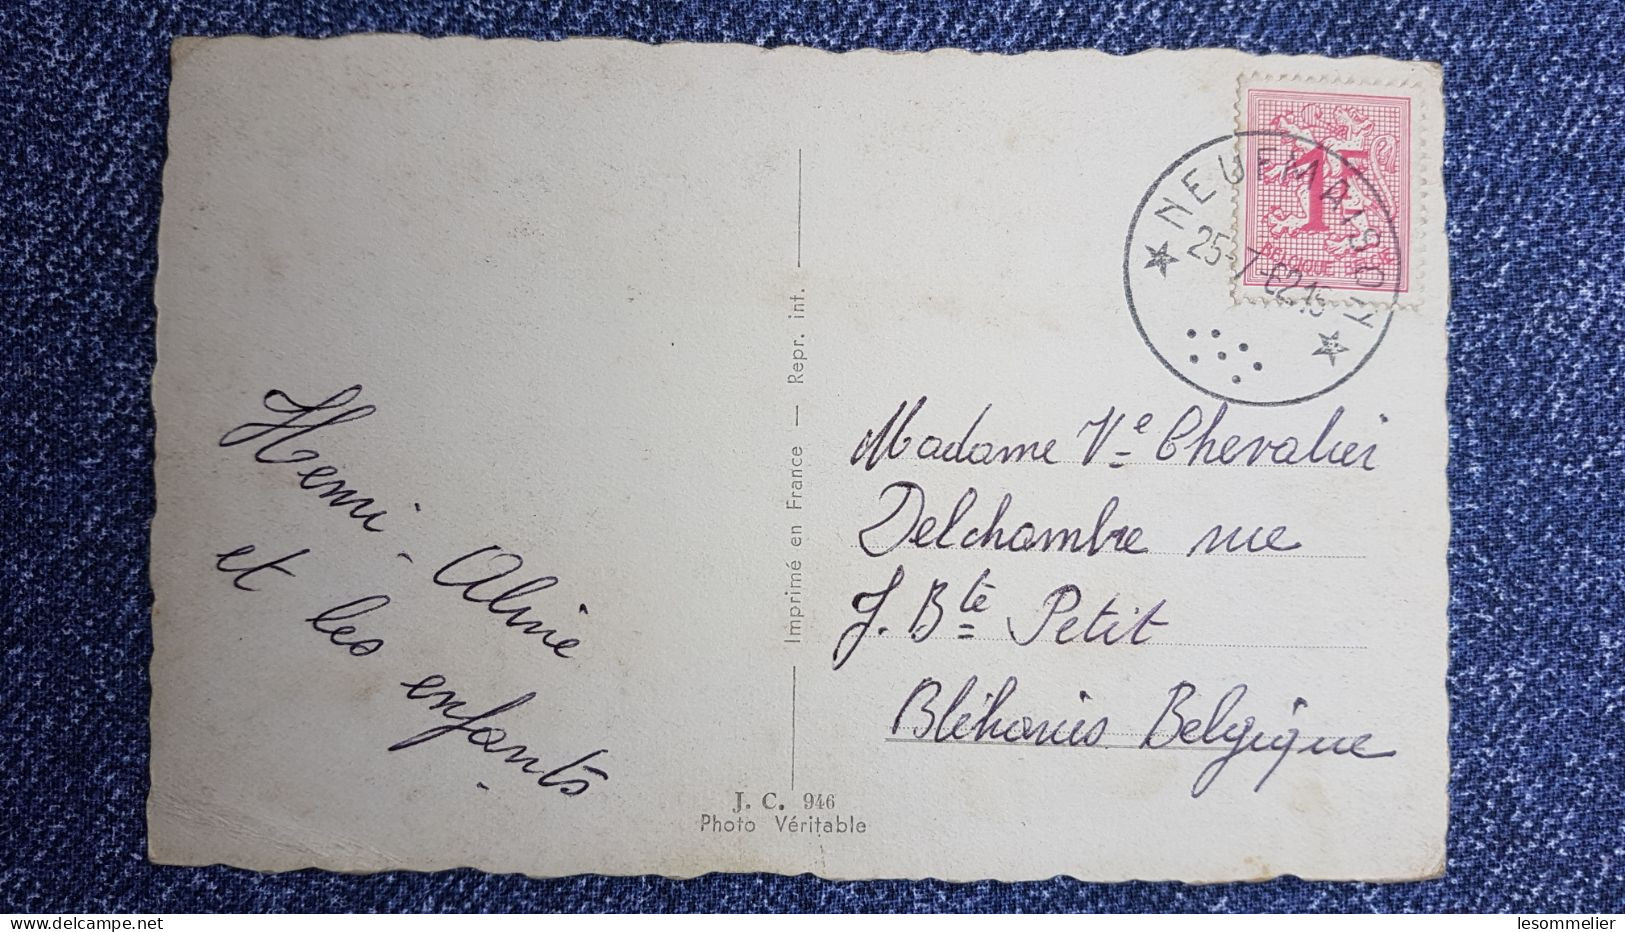 1F
BELGIQUE
NEUFMAISON
25-7-62 15
Henri - Aline
et les enfants
Imprimé en France — Repr. int.
Madame Ve Chevalier
Delchambre rue
J. Bte Petit
Bléharies Belgique
J. C. 946
Photo Véritable
delcampe.net
lesommelier